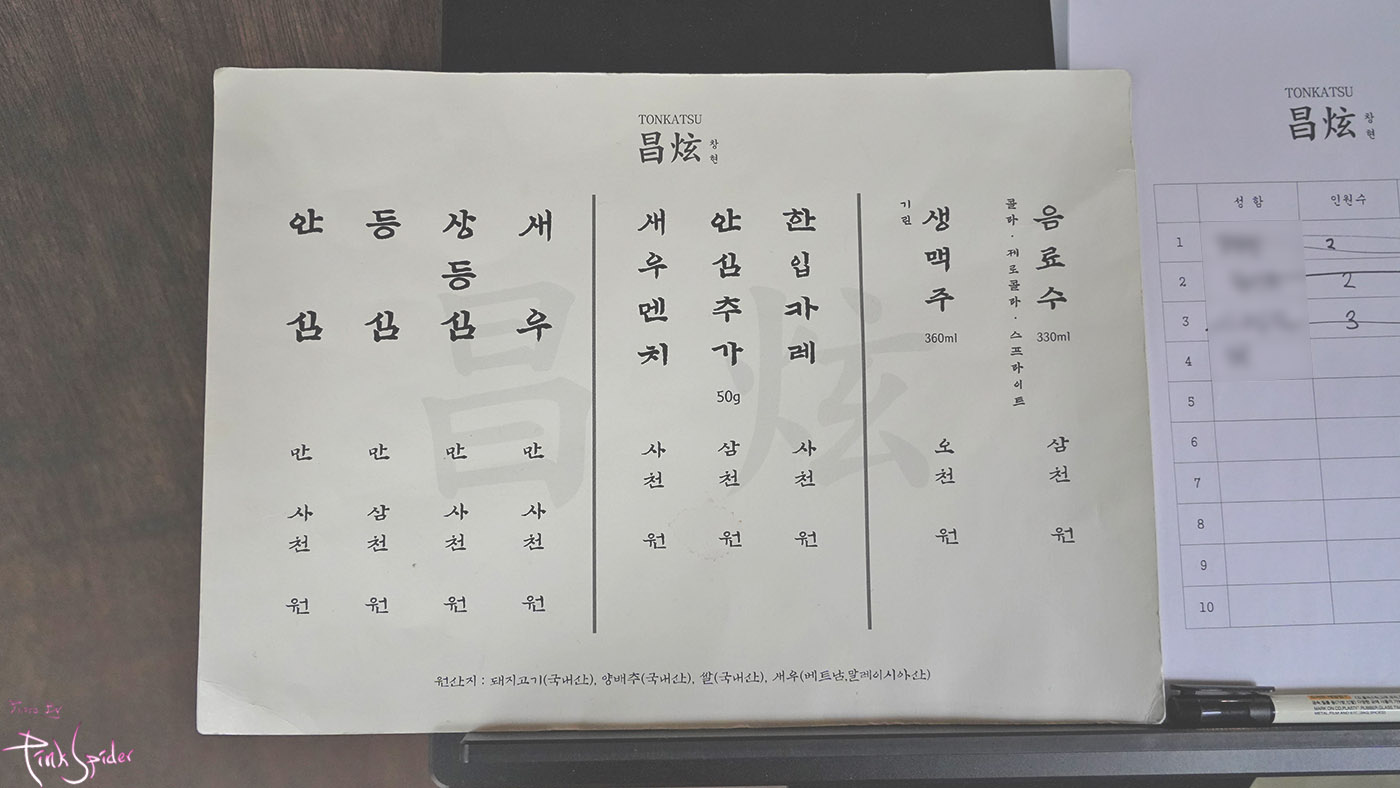 TONKATSU
昌炫 창현
안심 만 사천 원
등심 만 삼천 원
상등심 만 사천 원
새우 만 사천 원
새우멘치 사천 원
안심추가 50g 삼천 원
한입카레 사천 원
기린 생맥주 360ml 오천 원
콜라 · 제로콜라 · 스프라이트
음료수 330ml 삼천 원
昌炫
원산지 : 돼지고기(국내산), 양배추(국내산), 쌀(국내산), 새우(베트남,말레이시아산)
TONKATSU
昌炫 창현
성함 인원수
1 2
2 2
3 3
4
5
6
7
8
9
10
Pink Spider